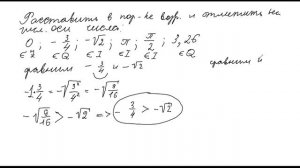 Расставить в пор-ке возр. и отметить на
числ. оси числа:
0; -3/4; -√2; π; π/2; 3,26
∈ Z ∈ Q ∈ I ∈ I ∈ I ∈ Q
сравним -3/4 и -√2 сравним
-1·3/4 = -√(3²/4²) = -√(9/16)
-√(9/16) > -√2 => -3/4 > -√2